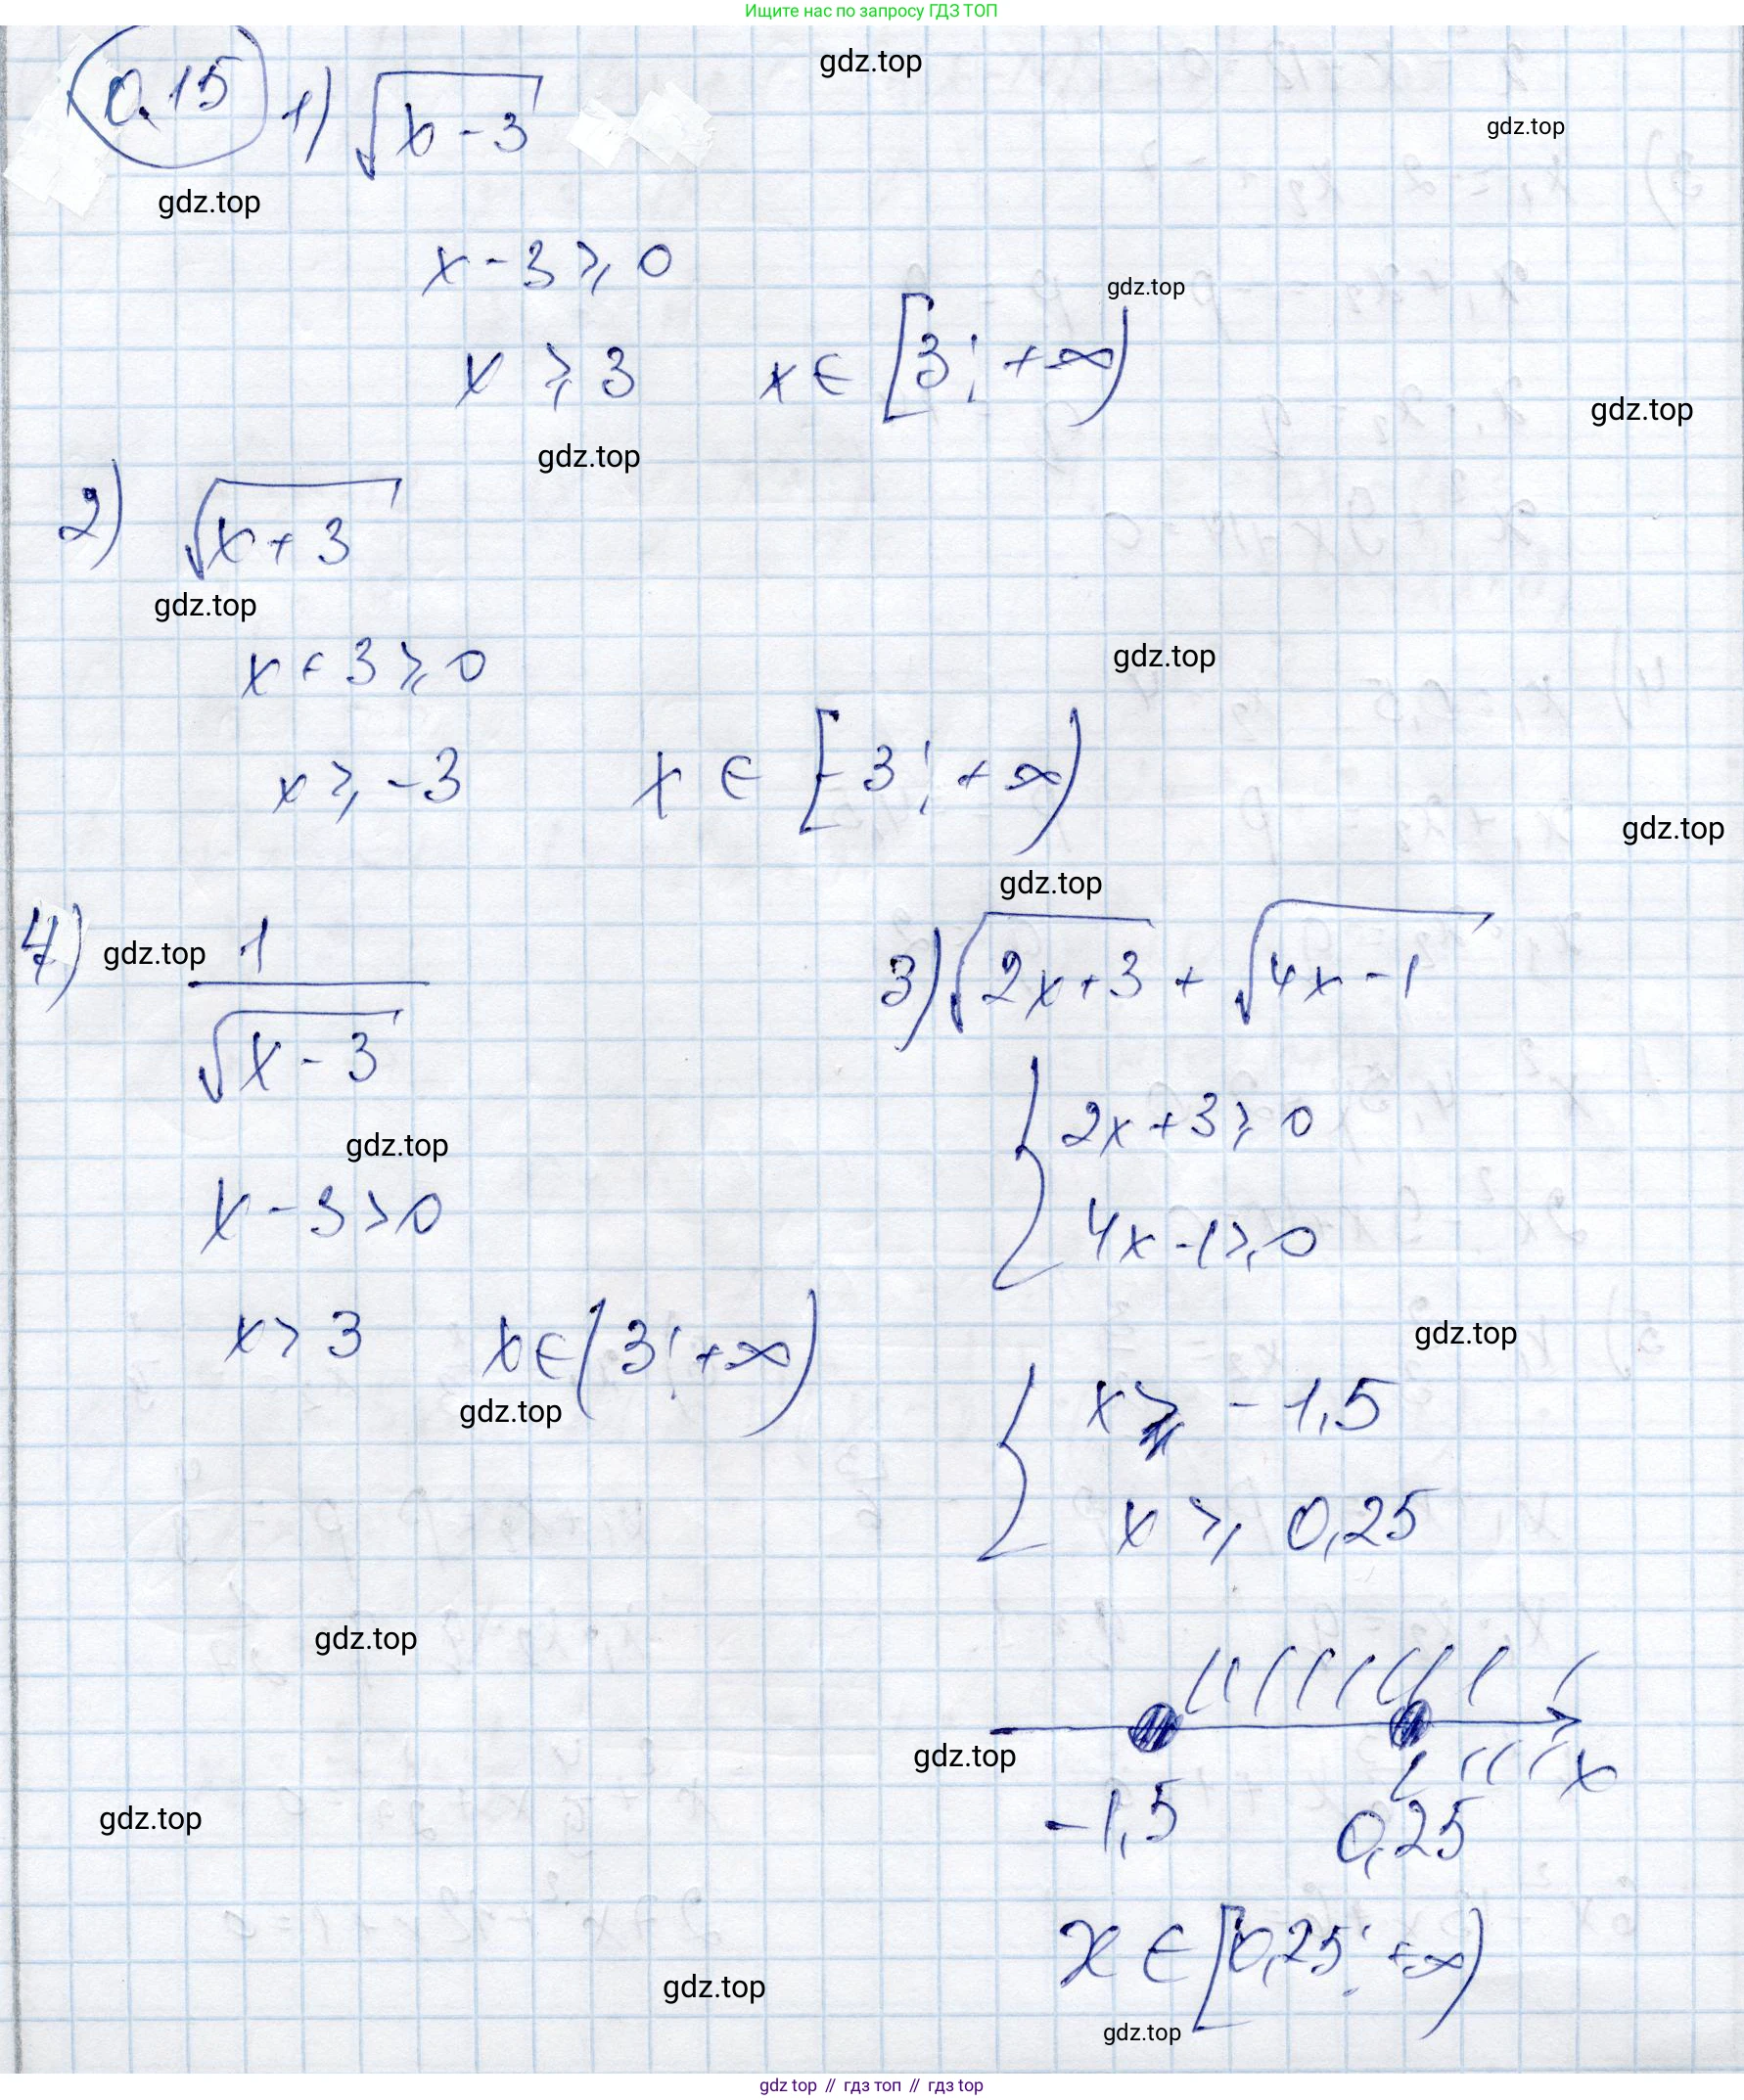 Ищите нас по запросу ГДЗ ТОП
gdz.top
0.15 1) √(x - 3)
gdz.top
gdz.top
x - 3 ⩾ 0
gdz.top
x ⩾ 3 x ∈ [3; +∞)
gdz.top
gdz.top
2) √(x + 3)
gdz.top
x + 3 ⩾ 0
gdz.top
x ⩾ -3 x ∈ [-3; +∞)
gdz.top
gdz.top
4) 1/√(x - 3)
gdz.top
gdz.top
x - 3 > 0
x > 3 x ∈ (3; +∞)
gdz.top
3) √(2x + 3) + √(4x - 1)
{ 2x + 3 ⩾ 0
4x - 1 ⩾ 0
gdz.top
{ x ⩾ -1,5
x ⩾ 0,25
gdz.top
gdz.top
x
-1,5 0,25
gdz.top
x ∈ [0,25; +∞)
gdz.top
gdz.top
gdz top // гдз топ // gdz top